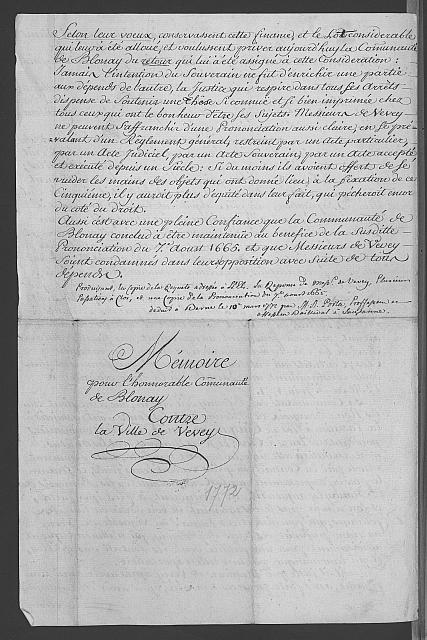 Selon leur vœux, conservassent cette finance, et le Lot considerable
qui leur a été alloué, et voulussent priver aujourd'huy la Comunauté
de Blonay du retour qui lui a été assigné à cette Consideration:
Jamais l'intention du Souverain ne fut d'enrichir une partie
aux depends de l'autre, la Justice qui respire dans tous ses Arrêts
dispense de Soutenir une these si connuë et si bien imprimée chez
tous ceux qui ont le bonheur d'être ses Sujets. Messieurs de Vevey
ne peuvent s'affranchir d'une Prononciation aussi claire, en se pré-
valant d'un Reglement général, restraint par un Acte particulier,
par un Acte Judiciel, par un Acte Souverain, par un Acte accepté
et executé depuis un Siècle: Si du moins ils avoient offert de se
vuider les mains des objets qui ont donné lieu à la fixation de ce
Cinquième, il y auroit plus d'équité dans leur fait, qui pécheroit encor
du coté du Droit.
Aussi c'est avec une pleine Confiance que la Communauté de
Blonay conclud à être maintenuë au benefice de la Susditte
Prononciation du 7e Aoust 1665, et que Messieurs de Vevey
Soient condamnés dans leur opposition avec Suite de tous
depends.
Produisant, la Copie de la Requete
la Reponse de Vevey,
et une Copie de la Prononciation du 7e aoust 1665.
deduit à le 10e mars 1772 par, Porta, Professeur
à Lausanne.
Mémoire
pour l'honnorable Comunauté
de Blonay
Contre
la Ville de Vevey
1772